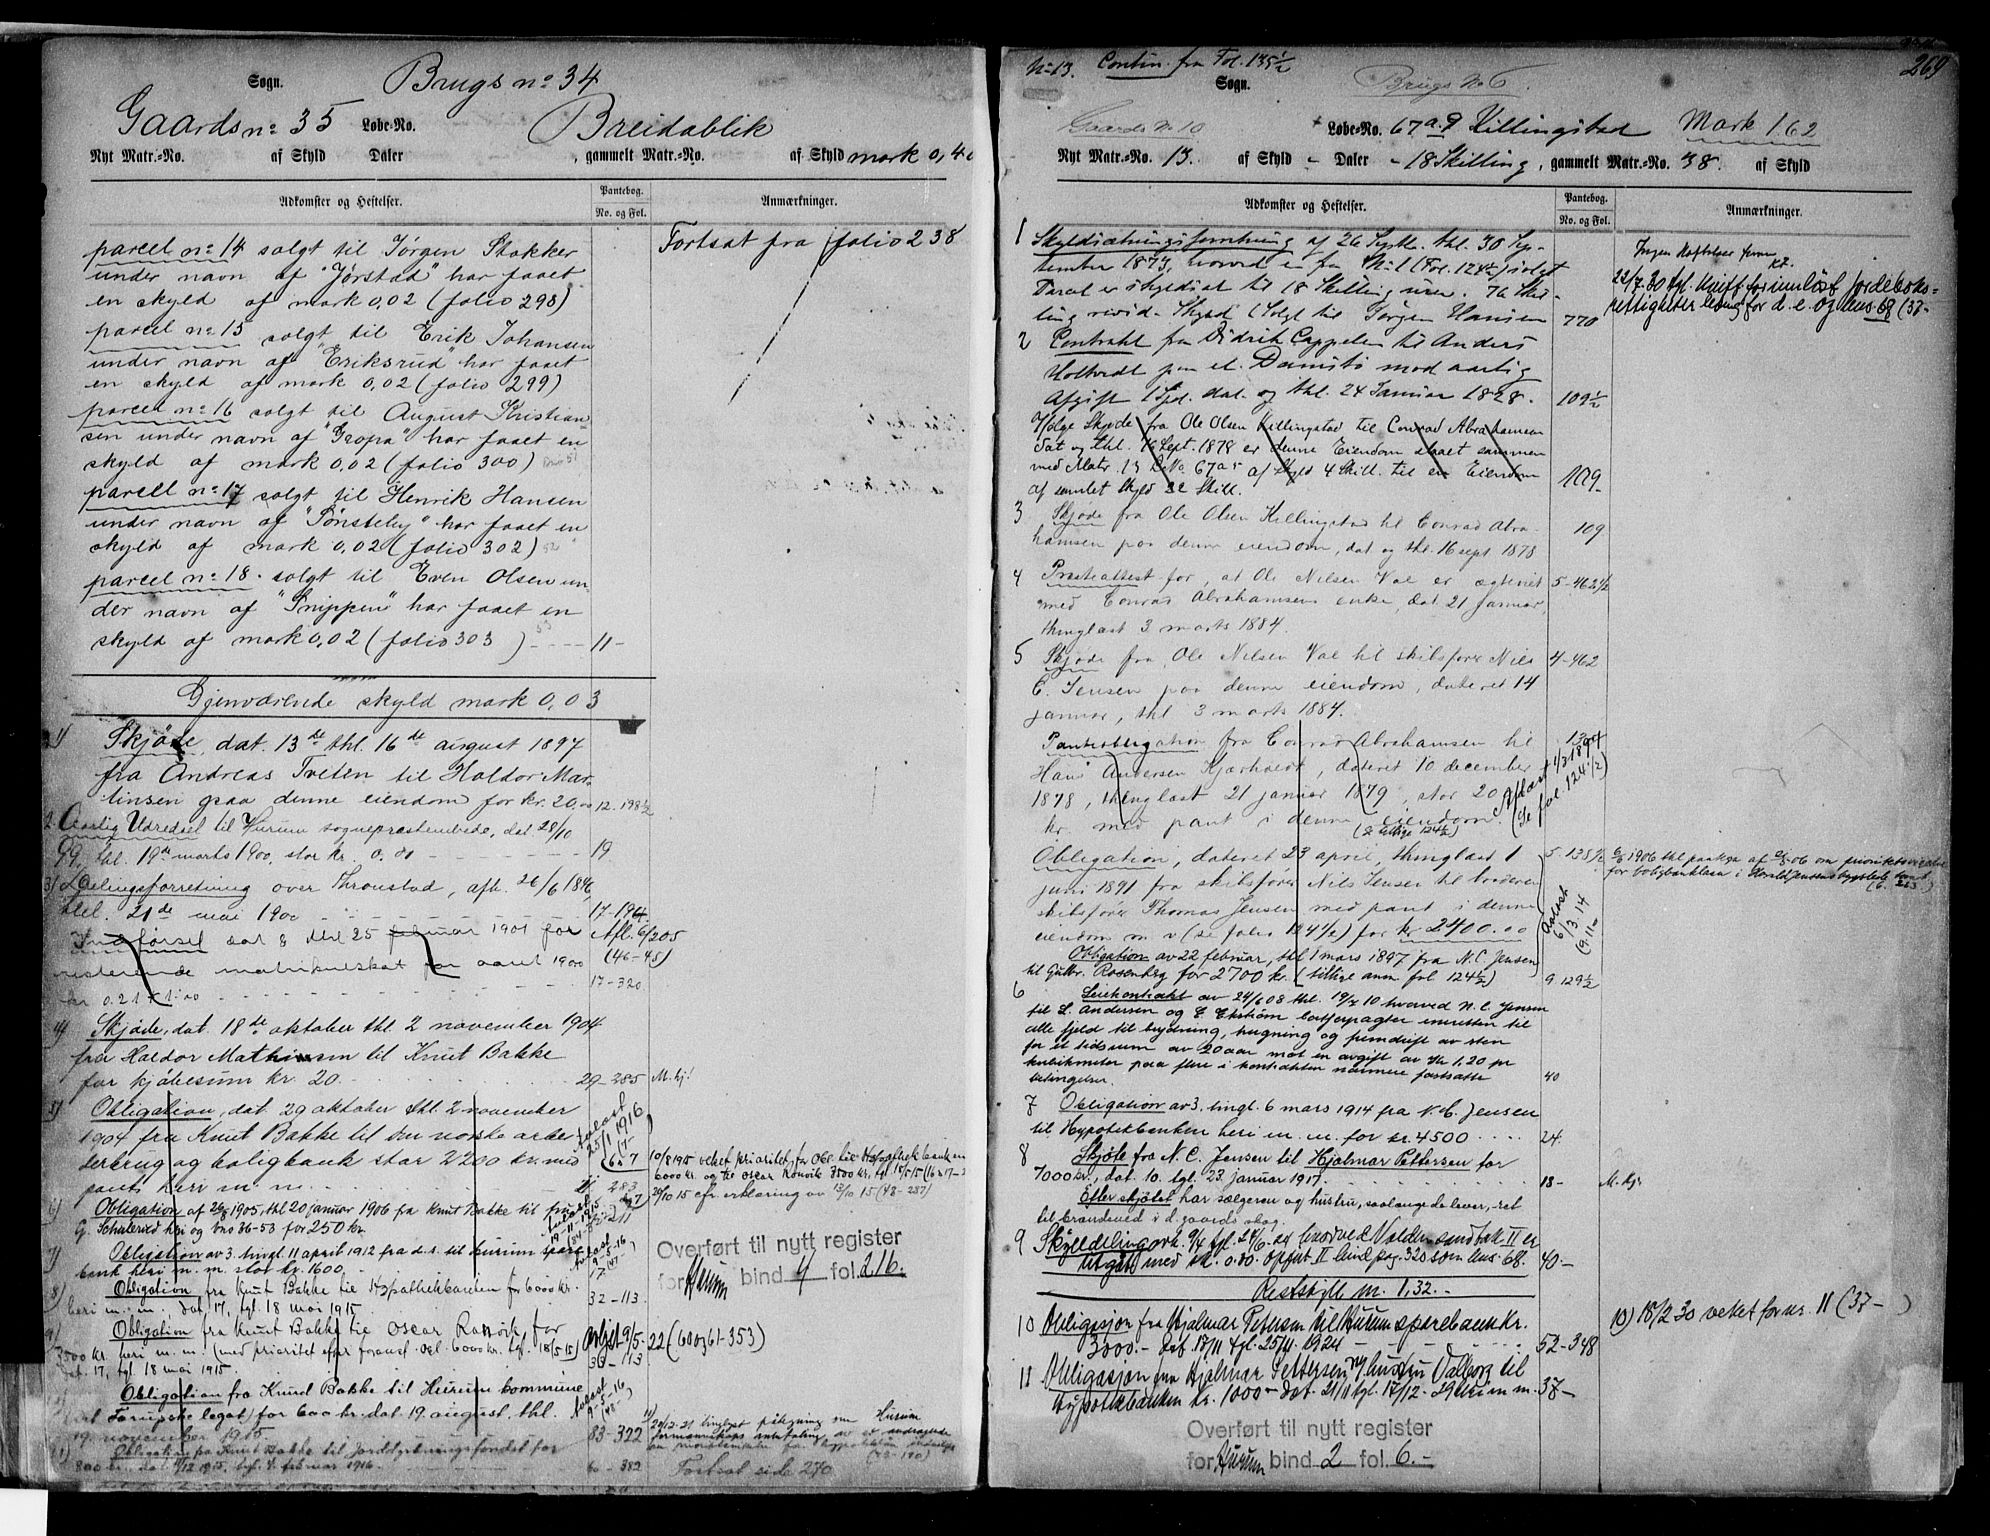 Sogn. Brugs no 34
Gaards no 35 Løbe-No. Breidablik
Nyt Matr.-No. af Skyld Daler , gammelt Matr.-No. af Skyld mark 0,4
Adkomster og Heftelser. Pantebog. No. og Fol. Anmærkninger.
parcel no 14 solgt til Jørgen Stokker Fortsat fra folio 238
under navn af "Jørstad" har faaet
en skyld af mark 0,02 (folio 298)
parcel no 15 solgt til Erik Johansen
under navn af "Eriksrud" har faaet
en skyld af mark 0,02 (folio 299)
parcel no 16 solgt til August Kristian
sen under navn af "Gropa" har faaet en
skyld af mark 0,02 (folio 300)
parcel no 17 solgt til Henrik Hansen
under navn af "Tønsteby" har faaet en
skyld af mark 0,02 (folio 302) 52
parcel no 18 solgt til Even Olsen un
der navn af "Snippen" har faaet en
skyld af mark 0,02 (folio 303) 53 11-
Gjenværende skyld mark 0,03
1) Skjøde, dat. 13de thl. 16de august 1897
fra Andreas Tveten til Haldor Mar
tinsen paa denne eiendom for kr. 20,00 12. 198½
2. Aarlig Udredsel til Hurum sogneprestembede, dat 28/10
99, thl. 19de marts 1900, stor kr. 0.80 19
3) Delingsforretning over Thronstad, afh. 26/6 1896
thl. 21de mai 1900 17-194
Indførsel dat 8 thl 25 februar 1901 for Afl. 6/205
resterende matrikulskat for aaret 1900 (46-45)
kr 0.21 + 1.00 17-320
4) Skjøde, dat. 18de oktober thl 2 november 1904
fra Haldor Mathinsen til Knut Bakke
for kjøbesum kr. 20 29 285 M. hj!
5) Obligation, dat 29 oktober thl 2 november
1904 fra Knut Bakke til den norske arbe
derbrug og boligbank stor 2200 kr. med
pant heri m. m. 283
Aflæst 25/1 1916
10/8 1915 veket prioritet for obl. til Hypothekbanken
6000 kr. og til Oscar Rønvik 3500 kr, tgl 18/5 15
26/10 15 efr erklæring av 12/10 15 (48-237)
6) Obligation af 1905, thl 20 januar 1906 fra Knut Bakke til frue
G. Schulerud heri og bno 36-53 for 250 kr. 211
7) Obligation av 3. tingl. 11 april 1912 fra d. s. til Hurum spare
bank heri m. m. stor kr. 1600. 17
8) Obligation fra Knut Bakke til Hypothekbanken for 6000 kr.
heri m. m. dat 17, tgl. 18 mai 1915. 32-113
9) Obligation fra Knut Bakke til Oscar Rønvik for
3500 kr. heri m. m. (med prioritet efter foranst. obl. 6000 kr. tgl. 18/5 15)
dat. 17, tgl 18 mai 1915. 22 (600 361-353)
Obligation fra Knud Bakke til Hurum kommune
legat) for 600 kr. dat 19. august, thl.
19. november 1915 83-322
11) Obligation fra Knut Bakke til Jorddyrkningsfondet for
800 kr., dat 9/12 1915, tgl. 4. februar 1916. 382
Fortsat side 270
Overført til nytt register
for Hurum bind 4 fol. 216.
No 13. Contin. fra Fol. 135½ 269
Sogn. Brugs No 6
Gaards No 10 Løbe-No. 67a.9 Killingstad Mark 1.62
Nyt Matr.-No. 13. af Skyld - Daler - 18 Skilling, gammelt Matr.-No. 38. af Skyld
Adkomster og Heftelser. Pantebog. No. og Fol. Anmærkninger.
1 Skyldsætningsforretning af 26 Septb. thl. 30 Sep-
tember 1873, hvorved en fra No 1 (Fol. 124½) solgt
Parcel er skyldsat til 18 Skilling 76 Skil-
ling revid. Skyld (Solgt til Jørgen Hansen 770
22/7.30 tgl. 
rettigheter for d. e. og bns 68 (37-
2 Contrakt fra Didrik Cappelen til Anders
Holtvedt paa et Damstø mod aarlig
Afgift 1 Spd. dat. og thl. 24 Januar 1828. 109½
Ifølge Skjøde fra Ole Olsen Killingstad til Conrad Abrahamsen
dat og thl. 16 Sept. 1878 er denne Eiendom slaaet sammen
med Matr. 13 L.No. 67a5 af Skyld 4 Skill. til en Eiendom
af samlet Skyld 22 Skill. 109-
3 Skjøde fra Ole Olsen Killingstad til Conrad Abra-
hamsen paa denne eiendom, dat og thl. 16 sept 1878 109
4 Presteattest for, at Ole Nilsen Val er ægteviet 5-462½
med Conrad Abrahamsens enke, dat. 21 januar,
thinglæst 3 marts 1884.
5 Skjøde fra Ole Nilsen Val til skibsfører Nils 4-462
C. Jensen paa denne eiendom, dateret 14
januar, thl 3 marts 1884.
Panteobligation fra Conrad Abrahamsen til
Hans Andersen Kjærhvedt, dateret 10 december
1878, thinglæst 21 januar 1879, stor 20
kr. med pant i denne eiendom.
(& tillige 124½)
Aflæst 1/2 1894
(Se fol. 124½)
Obligation, dateret 23 april, thinglæst 1 5. 135½
juni 1891 fra skibsfører Nils Jensen til broderen
skibsfører Thomas Jensen med pant i denne
eiendom m. v. (se folio 124½) for kr 2400.00
Aflæst 6/3.14 (9.11-
Obligation av 22 februar, thl 1 mars 1897 fra N. C. Jensen
til Gulbr. Rosenberg for 2700 kr. (tillige anm fol 124½) 9. 129½
6 Leiekontrakt av 24/6 08 thl. 19/ 10 hvorved N. C. Jensen
til L. Andersen og E. Ekstrøm bortforpagter enretten til
alle fjeld til brydning, hugning og fremdrift av sten
for et tidsrum av 20 aar mot en avgift av kr 1,20 pr
kubikmeter paa flere i kontrakten nærmere fastsatte
betingelser. 40
7 Obligation av 3. tingl. 6 mars 1914 fra N. C. Jensen
til Hypotekbanken heri m. m. for kr. 4500 24.
8 Skjøte fra N. C. Jensen til Hjalmar Pettersen for
7000 kr., dat. 10. tgl. 23. januar 1917. 18- M. hj.
Efter skjøtet har sælgeren og hustru, saalænge de lever, ret
til brændeved i d. gaards skog.
9 Skylddeling avh. 9/4 tgl. 24/6 24 hvorved II er
utgåt med sk. 0.30 opført II bind pag. 320 som bns. 68. 40-
Restskyll m. 1,32.
10 Obligasjon fra Hjalmar Petersen til Hurum sparebank kr.
3000.- dat 17/11 tgl. 25/11 1924 52-348
10) 18/2 30 veket for nr. 11 (37- )
11 Obligasjon fra Hjalmar Pettersen og hustru Valborg til
Hypotekbanken kr. 1000- dat. 21/11 tgl. 17/12-29 heri m m. 37-
Overført til nytt register
for Hurum bind 2 fol. 6.-